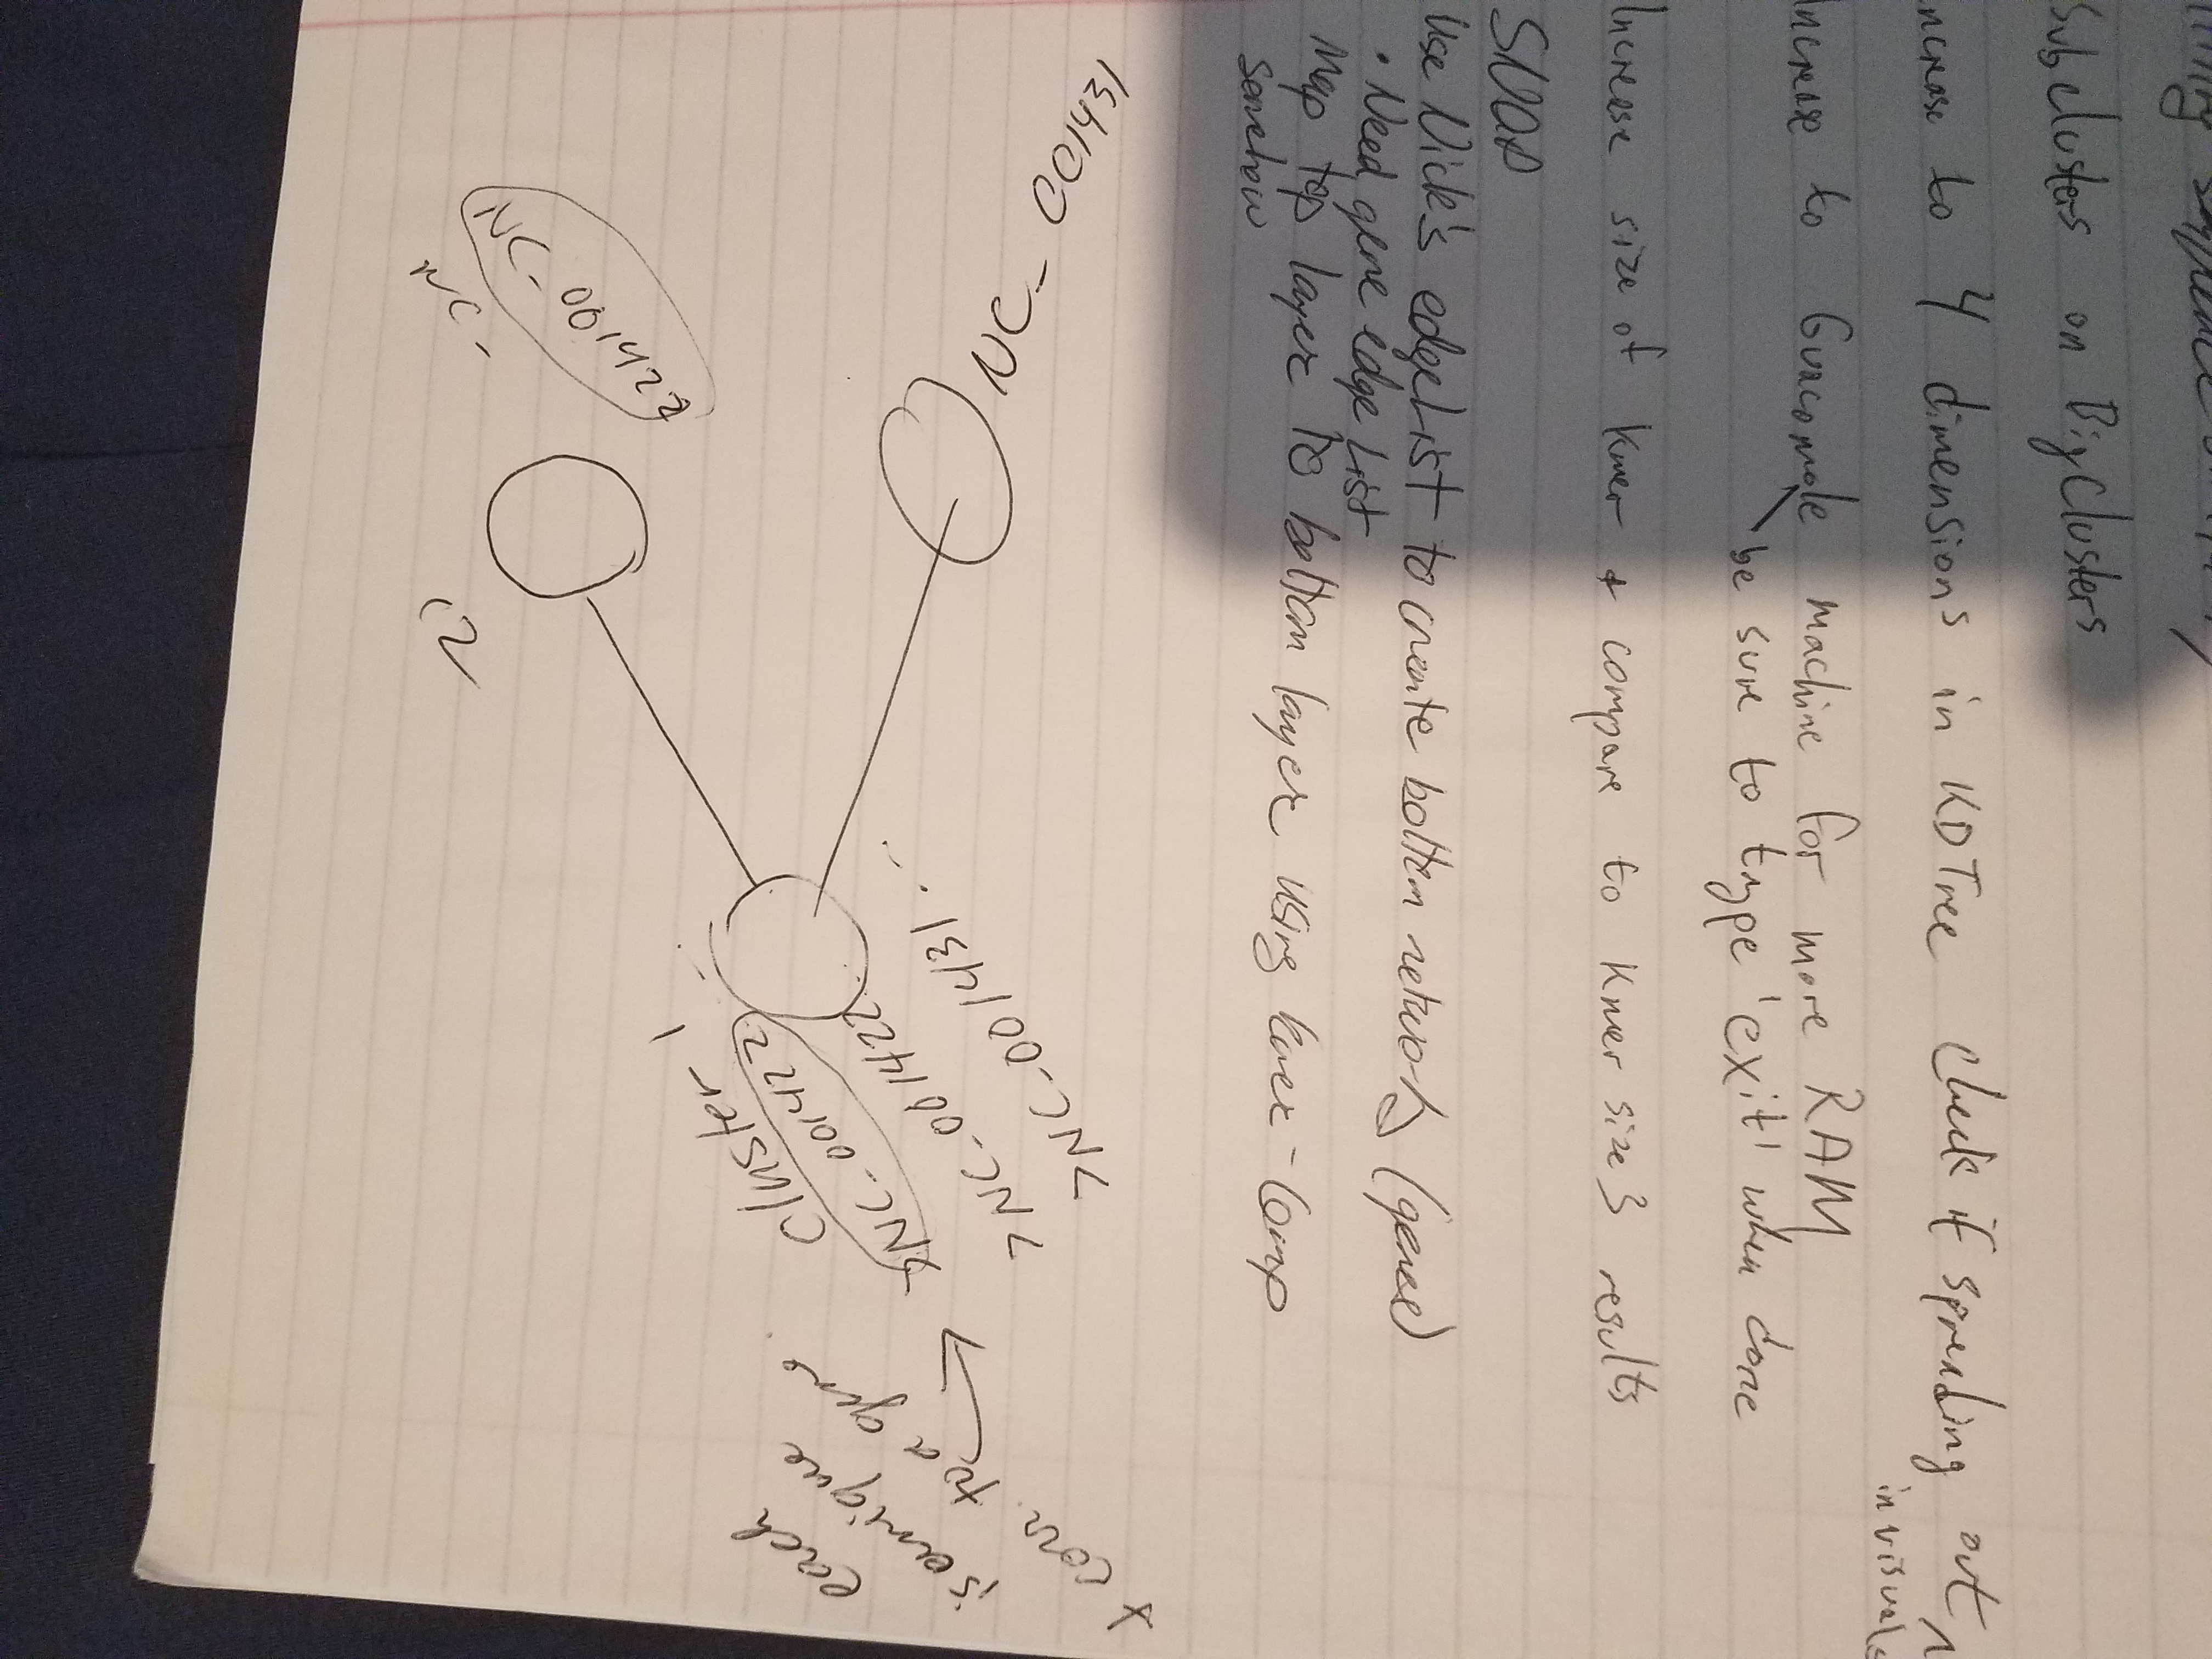 subclusters on Big Clusters
increase to 4 dimensions in KDTree Check if spreading out
in visuals
increase to Guacamole machine for more RAM
be sure to type 'exit' when done
Increase size of kmer + compare to kmer size 3 results
SNAP
Use Nick's edgelist to create bottom network (genes)
• Need gene edge list
Map top layer to bottom layer using kmer-comp
somehow
each
is unique
+ corr. to a gene.
cluster 1
>NC_001422
>NC_001422..
>NC_001431...
C2
NC_
NC_001422
NC_001431